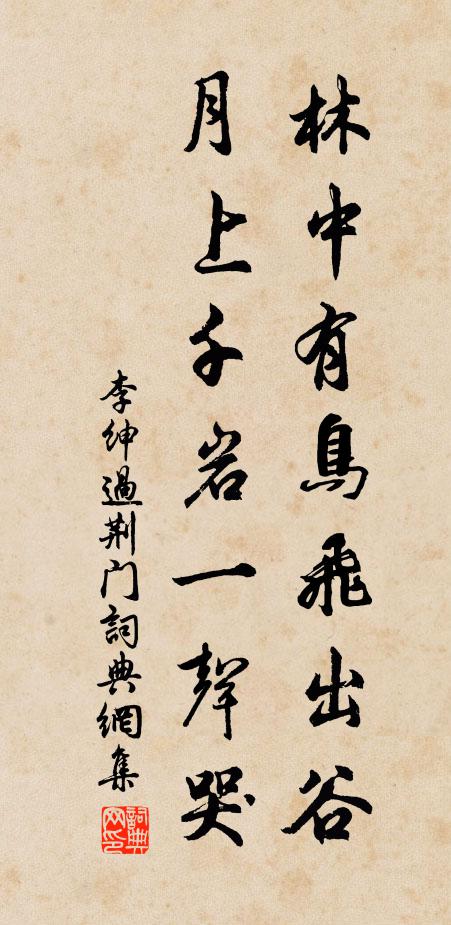 林中有鳥飛出谷
月上千岩一聲哭
李紳過荆门詞典網集
詞典网印